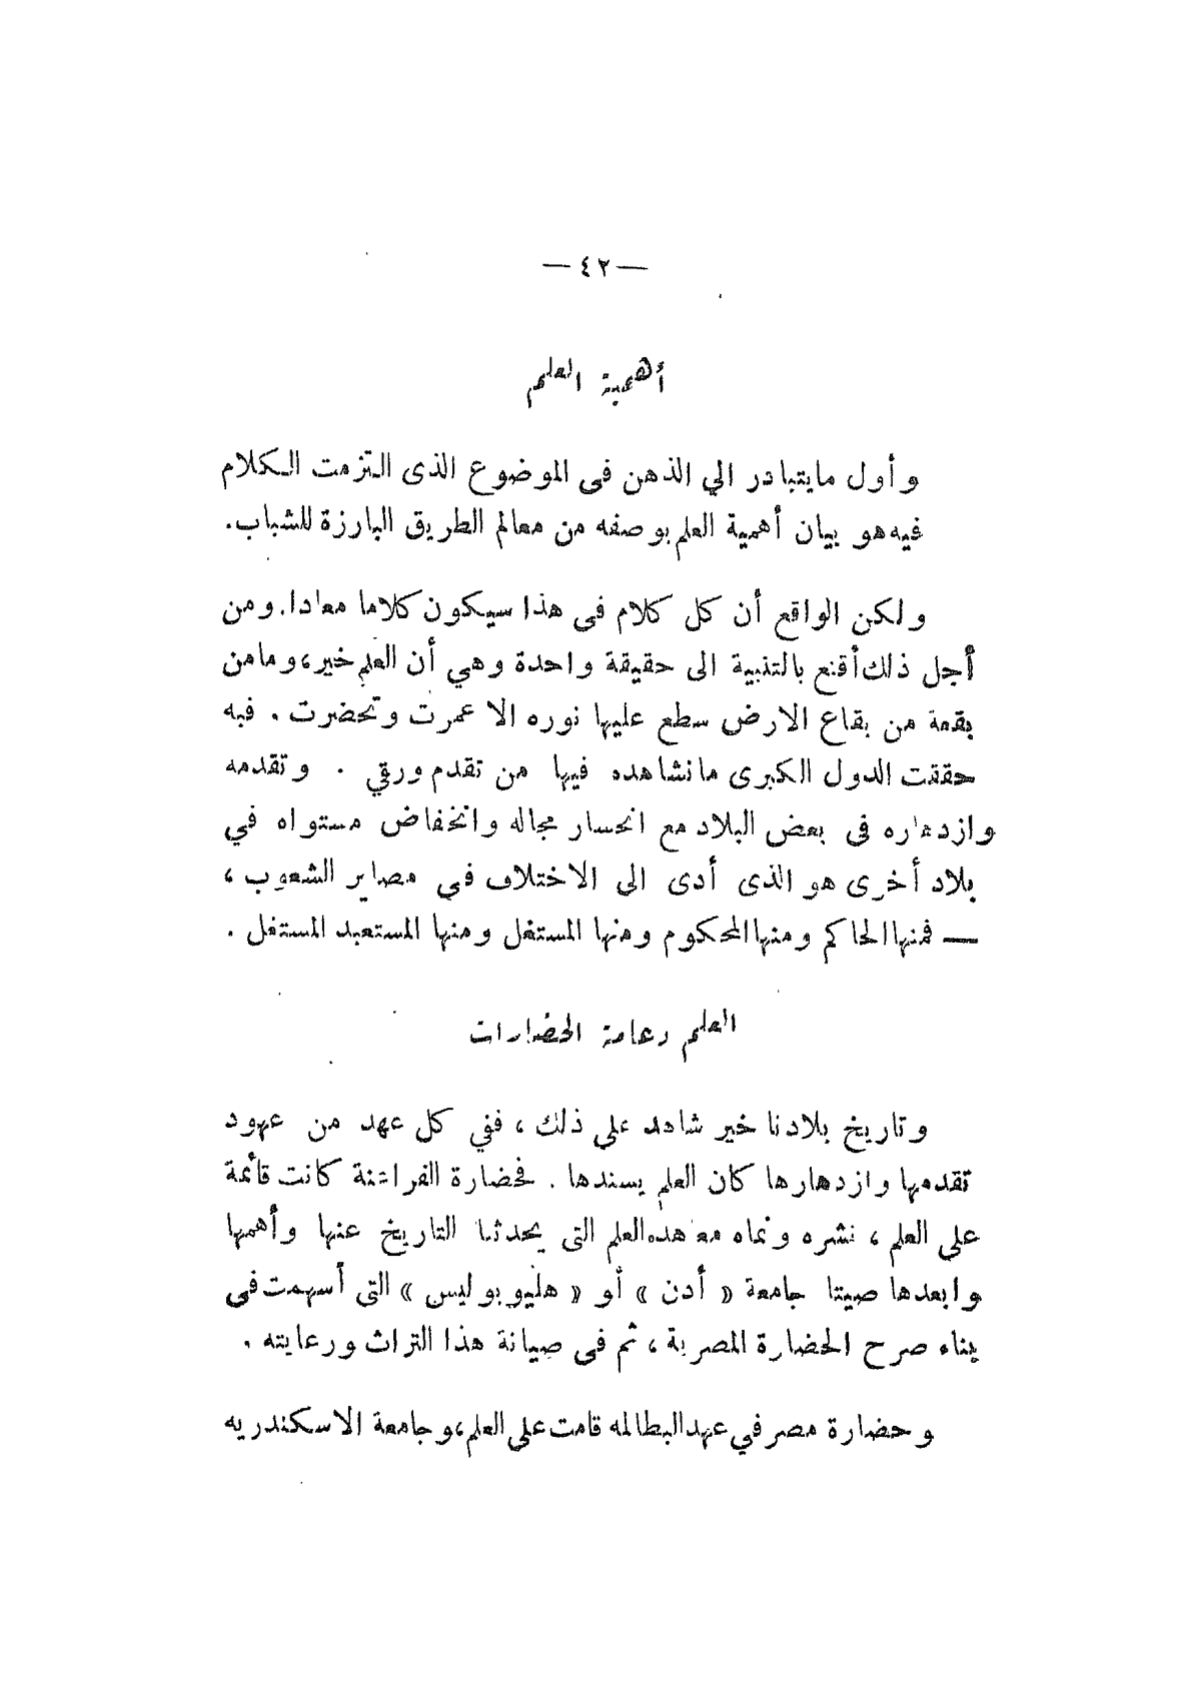 — ٤٢ —
أهمية العلم
وأول ما يتبادر الي الذهن في الموضوع الذى التزمت الكلام
فيه هو بيان أهمية العلم بوصفه من معالم الطريق البارزة للشباب.
ولكن الواقع أن كل كلام فى هذا سيكون كلاما معادا. ومن
أجل ذلك أقنع بالتنبية الى حقيقة واحدة وهي أن العلم خير، وما من
بقعة من بقاع الارض سطع عليها نوره الا عمرت وتحضرت . فبه
حققت الدول الكبرى ما نشاهده فيها من تقدم ورقي . وتقدمه
وازدهاره فى بعض البلاد مع انحسار مجاله وانخفاض مستواه في
بلاد أخرى هو الذى أدى الى الاختلاف في مصاير الشعوب ،
— فمنها الحاكم ومنها المحكوم ومنها المستغل ومنها المستعبد المستغل .
العلم دعامة الحضارات
وتاريخ بلادنا خير شاهد على ذلك ، ففي كل عهد من عهود
تقدمها وازدهارها كان العلم يسندها . فحضارة الفراعنة كانت قائمة
على العلم ، نشره ونماه معاهد العلم التى يحدثنا التاريخ عنها وأهمها
وابعدها صيتا جامعة « أدن » أو « هليوبوليس » التى أسهمت فى
بناء صرح الحضارة المصرية ، ثم فى صيانة هذا التراث ورعايته .
وحضارة مصر في عهد البطالمه قامت على العلم، وجامعة الاسكندريه